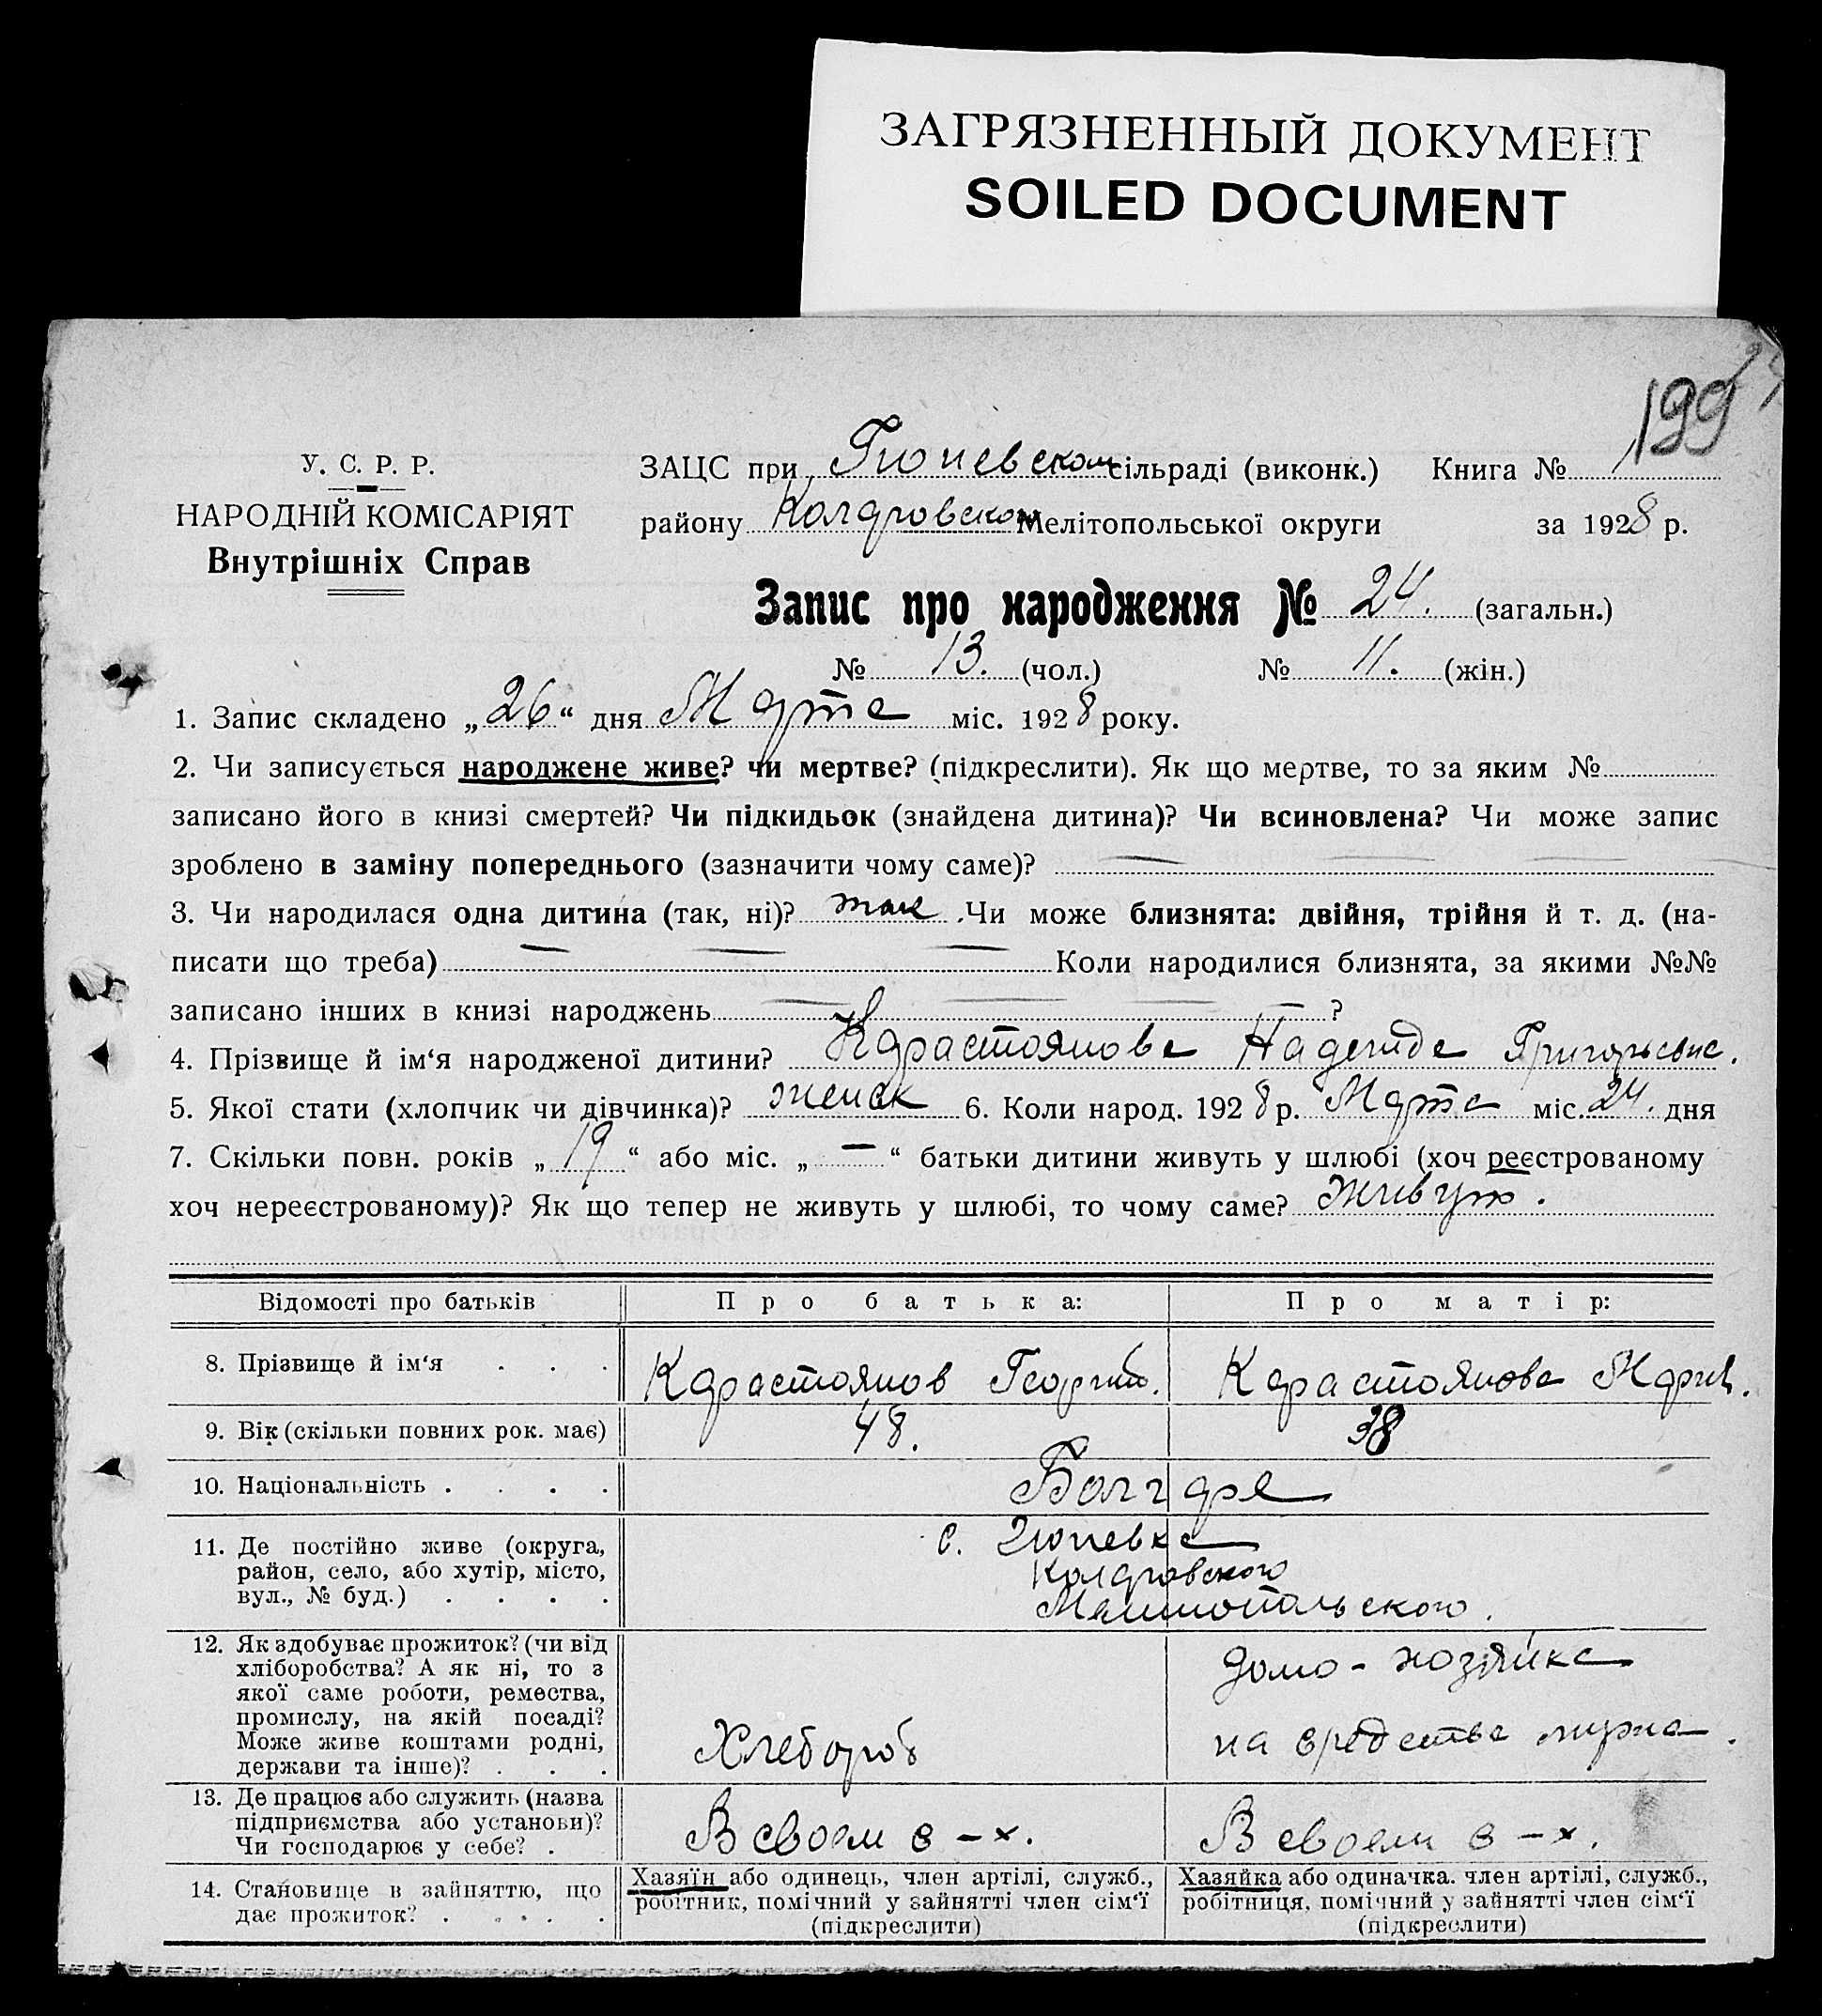 ЗАГРЯЗНЕННЫЙ ДОКУМЕНТ
SOILED DOCUMENT
199
У. С. Р. Р.
НАРОДНІЙ КОМІСАРІЯТ
Внутрішніх Справ
ЗАЦС при Гюневском сільраді (виконк.) Книга №
району Коларовском Мелітопольської округи за 1928 р.
Запис про народження № 24. (загальн.)
№ 13. (чол.) № 11. (жін.)
1. Запис складено „26“ дня Марта міс. 1928 року.
2. Чи записується народжене живе? чи мертве? (підкреслити). Як що мертве, то за яким №
записано його в книзі смертей? Чи підкидьок (знайдена дитина)? Чи всиновлена? Чи може запис
зроблено в заміну попереднього (зазначити чому саме)? — — —
3. Чи народилася одна дитина (так, ні)? так. Чи може близнята: двійня, трійня й т. д. (на-
писати що треба) — — — Коли народилися близнята, за якими №№
записано інших в книзі народжень — — — ?
4. Прізвище й ім‘я народженої дитини? Карастоянова Надежда Григорьевна.
5. Якої стати (хлопчик чи дівчинка)? женск 6. Коли народ. 1928 р. Марта міс. 24. дня
7. Скільки повн. років „19“ або міс. „—“ батьки дитини живуть у шлюбі (хоч реєстрованому
хоч нереєстрованому)? Як що тепер не живуть у шлюбі, то чому саме? Живут.
Відомості про батьків Про батька: Про матір:
8. Прізвище й ім‘я . . . Карастоянов Георгий. Карастоянова Мария.
9. Вік (скільки повних рок. має) 48. 38
10. Національність . . . . Болгаре
11. Де постійно живе (округа,
район, село, або хутір, місто,
вул., № буд.) . . . .
с. Гюневка
Коларовского
Мелитопольского.
12. Як здобуває прожиток? (чи від
хліборобства? А як ні, то з
якої саме роботи, ремества,
промислу, на якій посаді?
Може живе коштами родні,
держави та інше)? . . .
Хлебороб
домо-хозяйка
на средства мужа.
13. Де працює або служить (назва
підприємства або установи)?
Чи господарює у себе? .
В своем с-х. В своем с-х.
14. Становище в зайняттю, що
дає прожиток? . . . . .
Хазяїн або одинець, член артілі, служб.,
робітник, помічний у зайнятті член сім‘ї
(підкреслити)
Хазяйка або одиначка. член артілі, служб.,
робітниця, помічний у зайнятті член сім‘ї
(підкреслити)